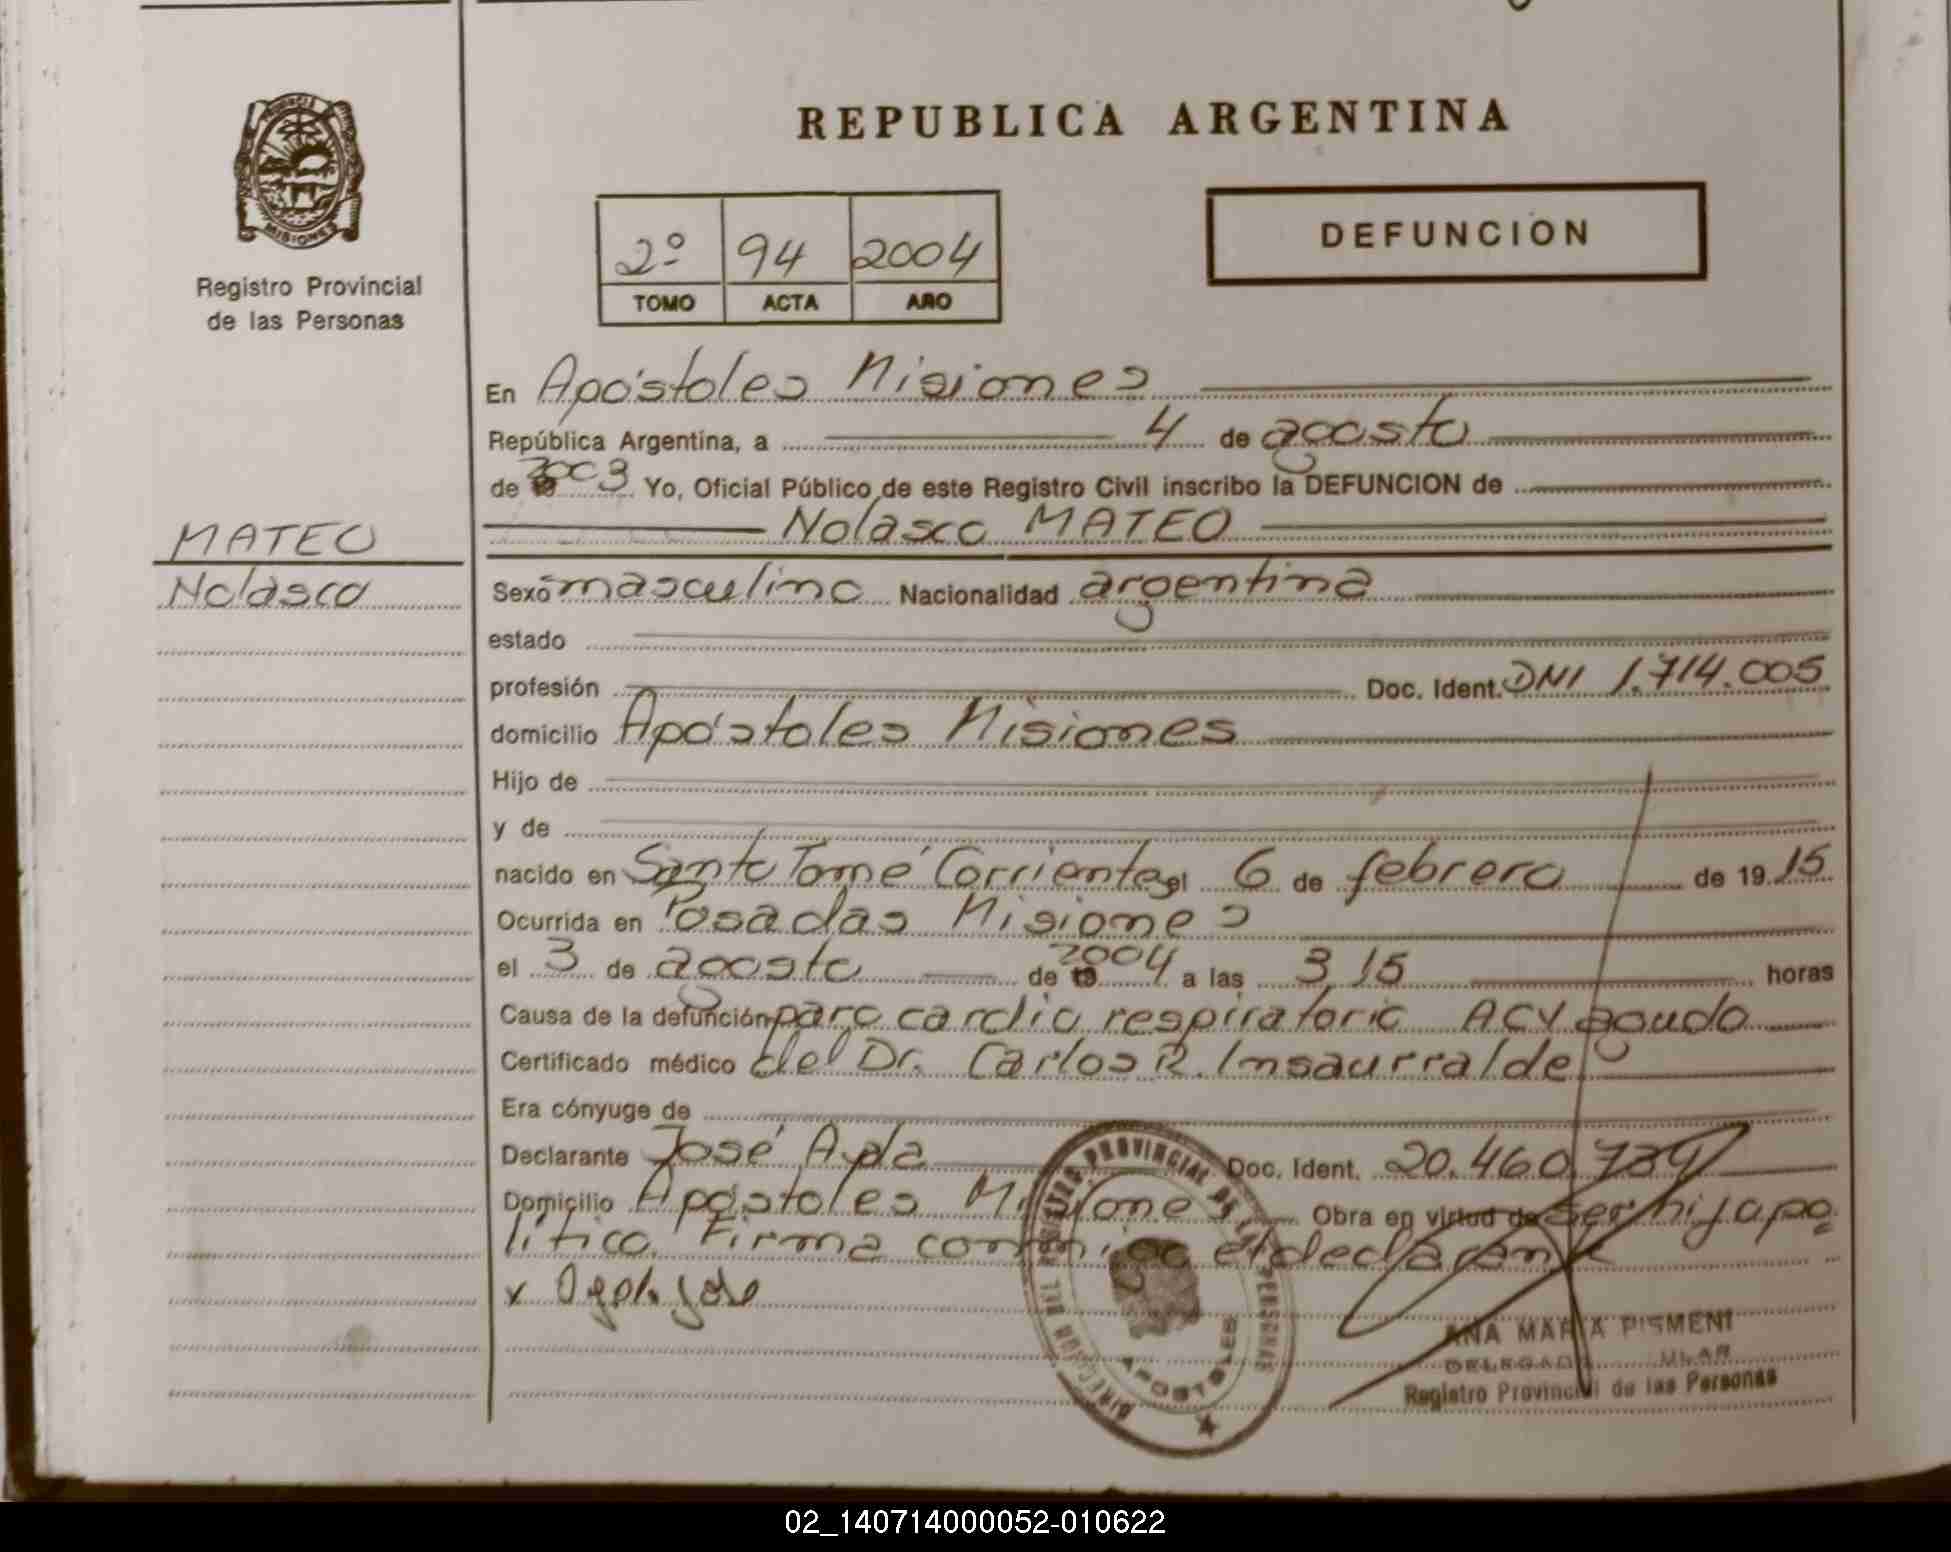 REPUBLICA ARGENTINA
PROVINCIA
MISIONES
Registro Provincial
de las Personas
2º 94 2004
TOMO ACTA AÑO
DEFUNCION
En Apóstoles Misiones
República Argentina, a 4 de agosto
de 2003 Yo, Oficial Público de este Registro Civil inscribo la DEFUNCION de
Nolasco MATEO
MATEO
Nolasco
Sexo masculino Nacionalidad argentina
estado
profesión Doc. Ident. DNI 1.714.005
domicilio Apóstoles Misiones
Hijo de
y de
nacido en Santo Tomé Corrientes el 6 de febrero de 19 15
Ocurrida en Posadas Misiones
el 3 de agosto de 2004 a las 3,15 horas
Causa de la defunción paro cardio respiratorio ACV agudo
Certificado médico del Dr. Carlos R. Insaurralde
Era cónyuge de
Declarante José Doc. Ident. 20.460.739
Domicilio Apóstoles Misiones Obra en virtud de ser hijo po
lítico. Firma conmigo el declarante
x
DIRECCION DEL REGISTRO PROVINCIAL DE LAS PERSONAS
APOSTOLES
ANA MARIA PISMENI
Registro Provincial de las Personas
02_140714000052-010622